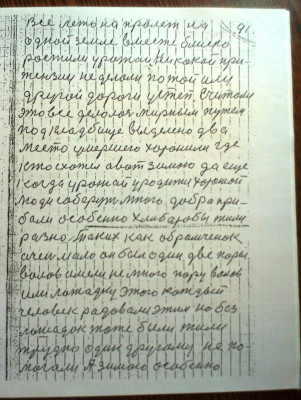 91
Все лето на пролет на
одной земле вместе близко
ростили урожай никакой при-
тензии не делали по той или
другой дороги уедет Считали
это все делолоч мирным путем
под кладбище выделено два
место умершего хоронили где
кто схотел а вот зимою да еще
когда урожай уродить хороший
люди соберут много добра при-
бали особенно хлиборобы жили
разно. таких как обромченок
очен мало он был один две пары
волов имели не много пару волов
или лошадку этого каждый
человек радовали этим но без
лошадок тоже были жили
трудно один другому не по-
могали А зимою особенно